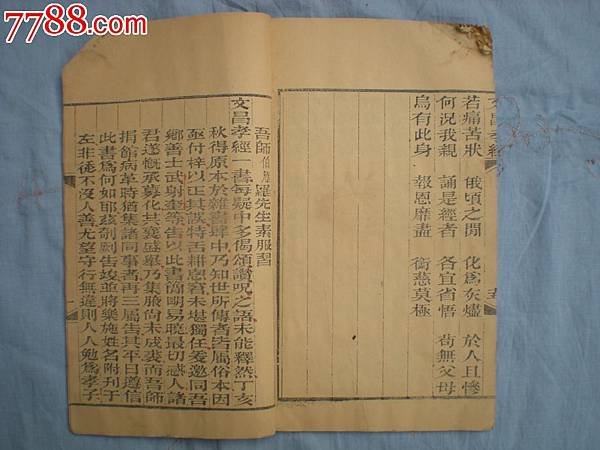 7788.com
中国收藏热线
文昌孝經
若痛苦狀 俄頃之間 化為灰燼 於人且慘
何況我親 誦是經者 各宜省悟 茍無父母
烏有此身 報恩靡盡 銜慈莫極
吾師伯 羅先生素服習
文昌孝經一書每疑中多偈頌讚呪之語未能釋然丁亥
秋得原本於雜書肆中乃知世所傳者皆屬俗本因
亟付梓以正其誤特舌耕窓窘未堪獨任爰邀同吾
鄉善士武射奎等告以此書簡明易曉最切感人諸
君遂慨承募化共襄盛舉乃集腋尚未成裘而吾師
捐館病革時猶集諸同事者再三屬告其平日遵信
此書為何如耶茲剞劂告竣並將樂施姓名附刊于
左非徒不沒人善尤望守行無違則人人勉為孝子